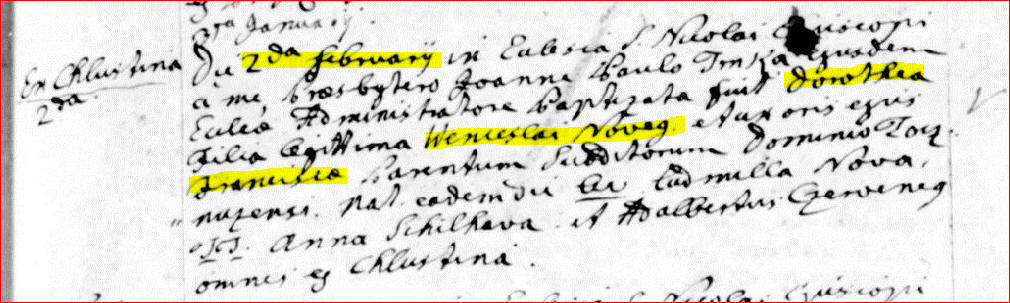 3tia January.
Ex Chlustina
2da.
Die 2da February in Ecclesia S. Nicolai Episcopi
à me Præsbytero Joanne Paulo ejusdem
Ecclæ Administratore Baptizata fuit Dorothea
Filia legittima Wenceslai Noveg. et uxoris ejus
Francisca Parentum Subditorum Dominio Tocz
nazensi. Nat. eadem die Lev Ludmilla Nova.
Anna Schilhava. et Adalbertus Czerveneg
omnes ex Chlustina.
Nicolai Episcopi